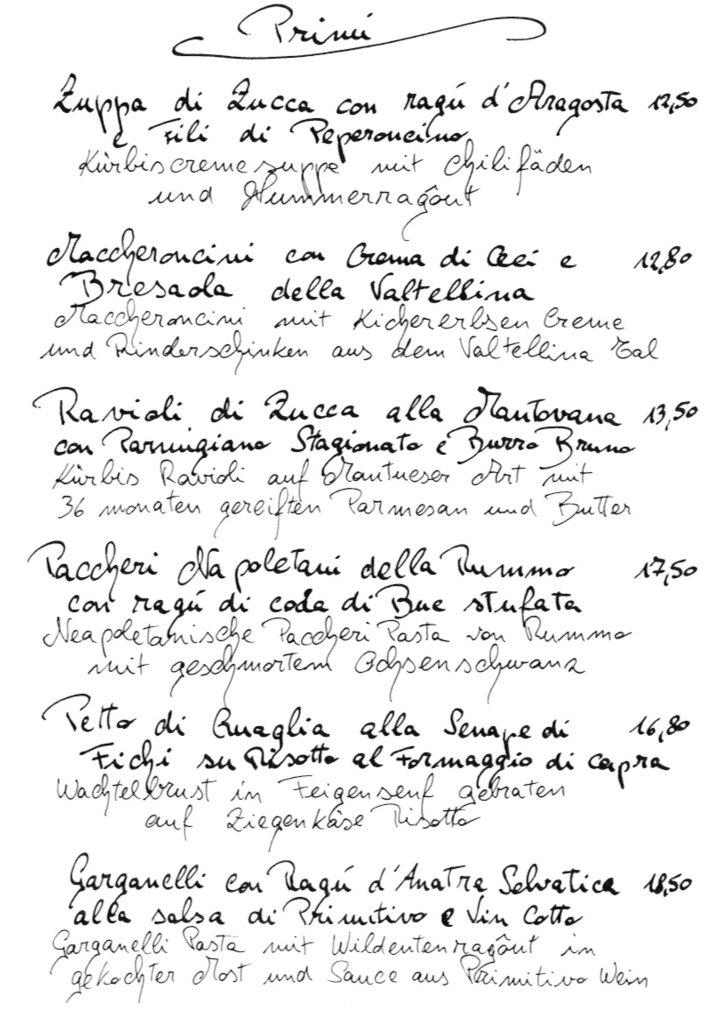 Primi
Zuppa di Zucca con ragú d'Aragosta 12,50
e Fili di Peperoncino
Kürbiscremesuppe mit Chilifäden
und Hummerragôut
Maccheroncini con Crema di Ceci e 12,80
Bresaola della Valtellina
Maccheroncini mit Kichererbsen Creme
und Rinderschinken aus dem Valtellina Tal
Ravioli di Zucca alla Mantovana 13,50
con Parmigiano Stagionato e Burro Bruno
Kürbis Ravioli auf Mantueser Art mit
36 monaten gereiften Parmesan und Butter
Paccheri Napoletani della Rummo 17,50
con ragú di coda di Bue stufata
Neapoletanische Paccheri Pasta von Rummo
mit geschmortem Ochsenschwanz
Petto di Quaglia alla Senape di 16,80
Fichi su Risotto al Formaggio di capra
Wachtelbrust in Feigensenf gebraten
auf Ziegenkäse Risotto
Garganelli con Ragú d'Anatra Selvatica 18,50
alla salsa di Primitivo e Vin Cotto
Garganelli Pasta mit Wildentenragôut in
gekochter Most und Sauce aus Primitivo Wein